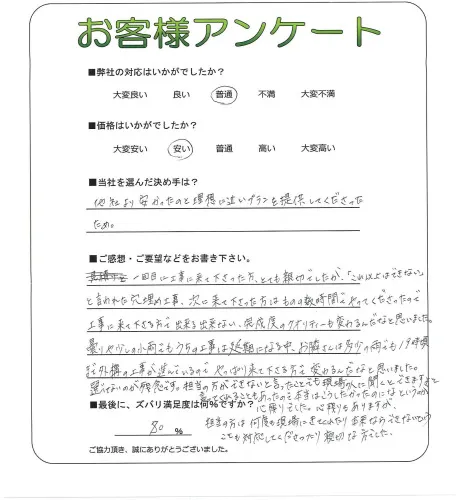 お客様アンケート
■弊社の対応はいかがでしたか？
大変良い 良い 普通 不満 大変不満
■価格はいかがでしたか？
大変安い 安い 普通 高い 大変高い
■当社を選んだ決め手は？
他社より安かったのと理想に近いプランを提供してくださった
ため。
■ご感想・ご要望などをお書き下さい。
一回目に工事に来て下さった方、とても親切でしたが、「これ以上はできない」
と言われた穴埋め工事、次に来て下さった方はものの数時間でやってくださったので
工事に来て下さる方で出来る出来ない、完成度のクオリティーも変わるんだなと思いました。
曇りや少しの小雨でもうちの工事は延期になる中、お隣さんは多少の雨でも19時頃
まで外構の工事が進んでいるので やっぱり来て下さる方で変わるんだなと思いました。
選べないのが残念です。担当の方ができないと言ったことでも現場の人に聞くとできますよと
言ってくれることもあったので本当はこうしたかったのになというのが
心残りでした。心残りもありますが、
担当の方は何度も現場にきてくれたり
でも対応してくださったり親切な方でした。
■最後に、ズバリ満足度は何%ですか？
80 %
ご協力頂き、誠にありがとうございました。